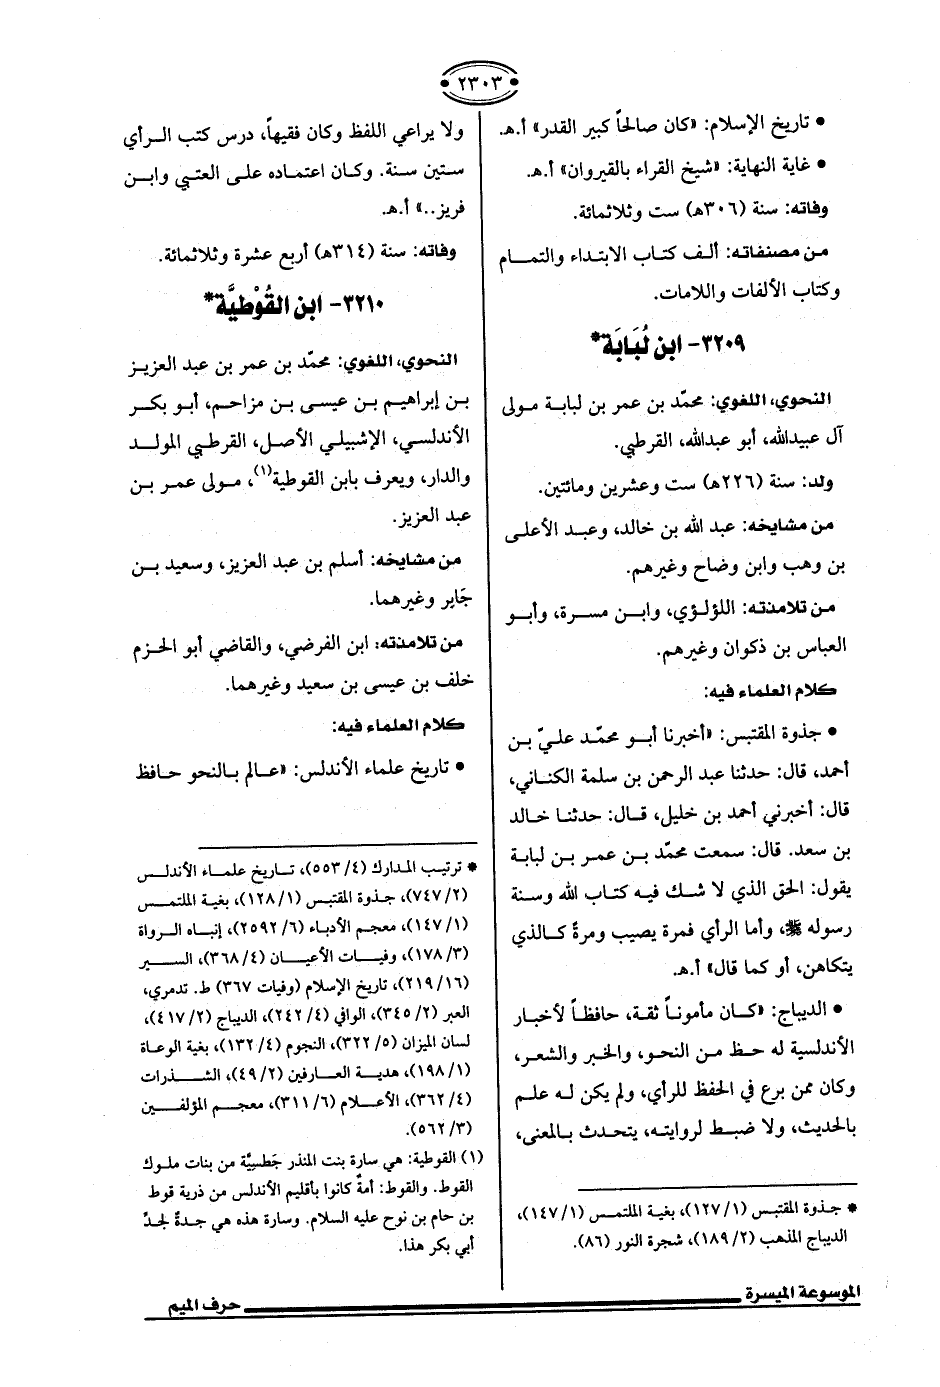 ٢٣٠٣
• تاريخ الإسلام: «كان صالحاً كبير القدر» أ.هـ.
• غاية النهاية: «شيخ القراء بالقيروان» أ.هـ.
وفاته: سنة (٣٠٦هـ) ست وثلاثمائة.
من مصنفاته: ألف كتاب الابتداء والتمام
وكتاب الألفات واللامات.
٣٢٠٩- ابن لُبَابَة*
النحوي، اللغوي: محمّد بن عمر بن لبابة مولى
آل عبيدالله، أبو عبدالله، القرطبي.
ولد: سنة (٢٢٦هـ) ست وعشرين ومائتين.
من مشايخه: عبد الله بن خالد، وعبد الأعلى
بن وهب وابن وضاح وغيرهم.
من تلامذته: اللؤلؤي، وابن مسرة، وأبو
العباس بن ذكوان وغيرهم.
كلام العلماء فيه:
• جذوة المقتبس: «أخبرنا أبو محمّد عليّ بن
أحمد، قال: حدثنا عبد الرحمن بن سلمة الكناني،
قال: أخبرني أحمد بن خليل، قال: حدثنا خالد
بن سعد. قال: سمعت محمّد بن عمر بن لبابة
يقول: الحق الذي لا شك فيه كتاب الله وسنة
رسوله ﷺ، وأما الرأي فمرة يصيب ومرةً كالذي
يتكاهن، أو كما قال» أ.هـ.
• الديباج: «كان مأموناً ثقة، حافظاً لأخبار
الأندلسية له حظ من النحو، والخبر والشعر،
وكان ممن برع في الحفظ للرأي، ولم يكن له علم
بالحديث، ولا ضبط لروايته، يتحدث بالمعنى،
* جذوة المقتبس (١/١٢٧)، بغية الملتمس (١/١٤٧)،
الديباج المذهب (٢/١٨٩)، شجرة النور (٨٦).
ولا يراعي اللفظ وكان فقيهاً، درس كتب الرأي
ستين سنة. وكان اعتماده على العتبي وابن
فريز..» أ.هـ.
وفاته: سنة (٣١٤هـ) أربع عشرة وثلاثمائة.
٣٢١٠- ابن القُوْطيَّة*
النحوي، اللغوي: محمّد بن عمر بن عبد العزيز
بن إبراهيم بن عيسى بن مزاحم، أبو بكر
الأندلسي، الإشبيلي الأصل، القرطبي المولد
والدار، ويعرف بابن القوطية(١)، مولى عمر بن
عبد العزيز.
من مشايخه: أسلم بن عبد العزيز، وسعيد بن
جَابر وغيرهما.
من تلامذته: ابن الفرضي، والقاضي أبو الحزم
خلف بن عيسى بن سعيد وغيرهما.
كلام العلماء فيه:
• تاريخ علماء الأندلس: «عالم بالنحو حافظ
* ترتيب المدارك (٤/٥٥٣)، تاريخ علماء الأندلس
(٢/٧٤٧)، جذوة المقتبس (١/١٢٨)، بغية الملتمس
(١/١٤٧)، معجم الأدباء (٦/٢٥٩٢)، إنباه الرواة
(٣/١٧٨)، وفيات الأعيان (٤/٣٦٨)، السير
(١٦/٢١٩)، تاريخ الإسلام (وفيات ٣٦٧) ط. تدمري،
العبر (٢/٣٤٥)، الوافي (٤/٢٤٢)، الديباج (٢/٤١٧)،
لسان الميزان (٥/٣٢٢)، النجوم (٤/١٣٢)، بغية الوعاة
(١/١٩٨)، هدية العارفين (٢/٤٩)، الشذرات
(٤/٣٦٢)، الأعلام (٦/٣١١)، معجم المؤلفين
(٣/٥٦٢).
(١) القوطية: هي سارة بنت المنذر جَطسيَّة من بنات ملوك
القوط. والقوط: أمةٌ كانوا بأقليم الأندلس من ذرية قوط
بن حام بن نوح عليه السلام. وسارة هذه هي جدةٌ لجدِّ
أبي بكر هذا.
الموسوعة الميسرة
حرف الميم